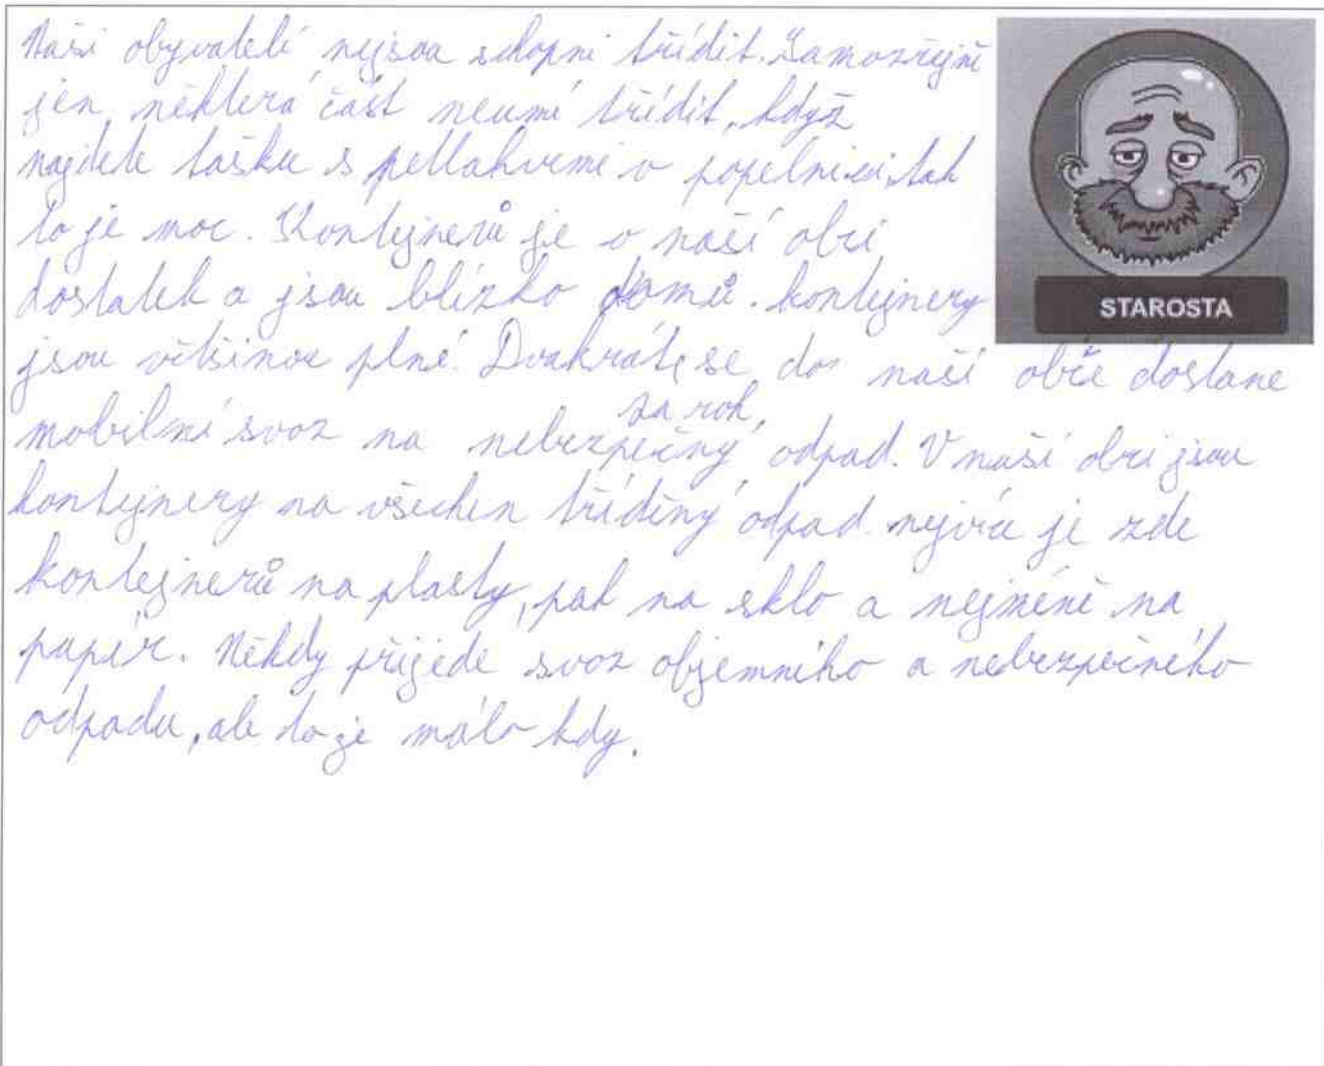 Naši obyvatelé nejsou schopni třídit. Samozřejmě
jen některá část neumí třídit, když
najdete tašku s petlahvemi v popelnici, tak
to je moc. Kontejnerů je v naší obci
dostatek a jsou blízko domů. kontejnery
STAROSTA
jsou většinou plné. Dvakrát se do naší obce dostane
za rok,
mobilní svoz na nebezpečný odpad. V naší obci jsou
kontejnery na všechen tříděný odpad. nejvíce je zde
kontejnerů na plasty, pak na sklo a nejméně na
papír. Někdy přijede svoz objemného a nebezpečného
odpadu, ale to je málo kdy.